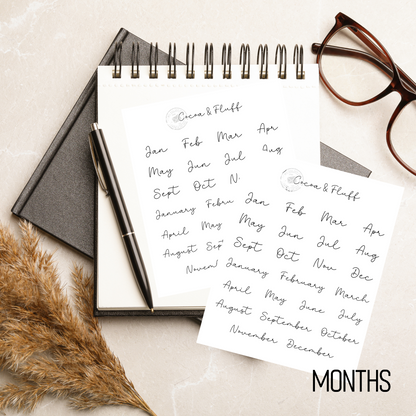 Cocoa & Fluff
Jan Feb Mar Apr
May Jun Jul Aug
Sept Oct N
January Febru
April May
August Sep
Novem
Cocoa & Fluff
Jan Feb Mar Apr
May Jun Jul Aug
Sept Oct Nov Dec
January February March
April May June July
August September October
November December
MONTHS